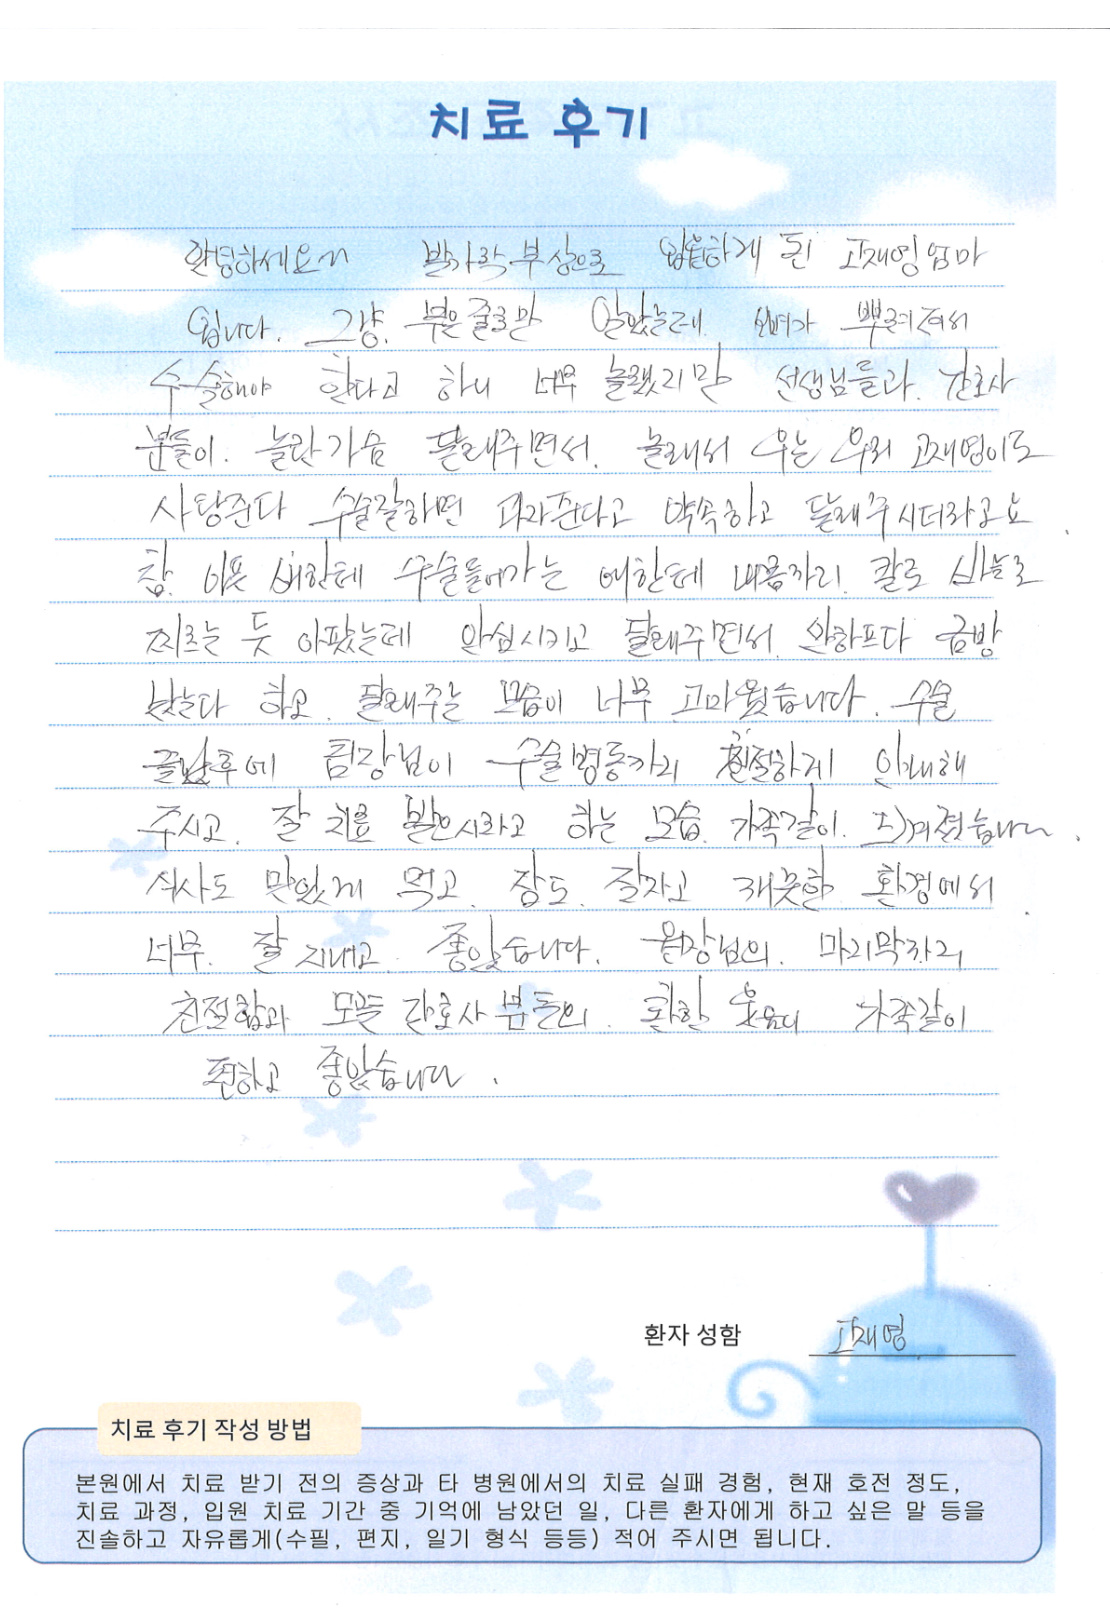 치료 후기
안녕하세요~ 발가락 부상으로 입원하게 된 고재영 엄마
입니다. 그냥. 부은 줄로만 알았는데. 뼈가 뿌러져서
수술해야 한다고 하니 너무 놀랬지만 선생님들과. 간호사
분들이. 놀란가슴 달래주면서. 놀래서 우는 우리 고재영이도
사탕준다 수술잘하면 과자준다고 약속하고 달래주시더라고요.
참. 어린 애한테 수술들어가는 애한테 칼로 바늘로
찌르는 듯 아팠는데 안심시키고 달래주면서. 안아프다 금방
낫는다 하고. 달래주는 모습이 너무 고마웠습니다. 수술
끝난후에 팀장님이 수술병동까지 친절하게 안내해
주시고. 잘 치료 받으시라고 하는 모습. 가족같이. 느껴졌습니다.
식사도 맛있게 먹고. 잠도. 잘자고 깨끗한 환경에서
너무. 잘 지내고. 좋았습니다. 원장님의. 마지막까지
친절함과 모든 간호사 분들의. 환한 웃음이 가족같이
편하고 좋았습니다.
환자 성함 고재영
치료 후기 작성 방법
본원에서 치료 받기 전의 증상과 타 병원에서의 치료 실패 경험, 현재 호전 정도,
치료 과정, 입원 치료 기간 중 기억에 남았던 일, 다른 환자에게 하고 싶은 말 등을
진솔하고 자유롭게(수필, 편지, 일기 형식 등등) 적어 주시면 됩니다.